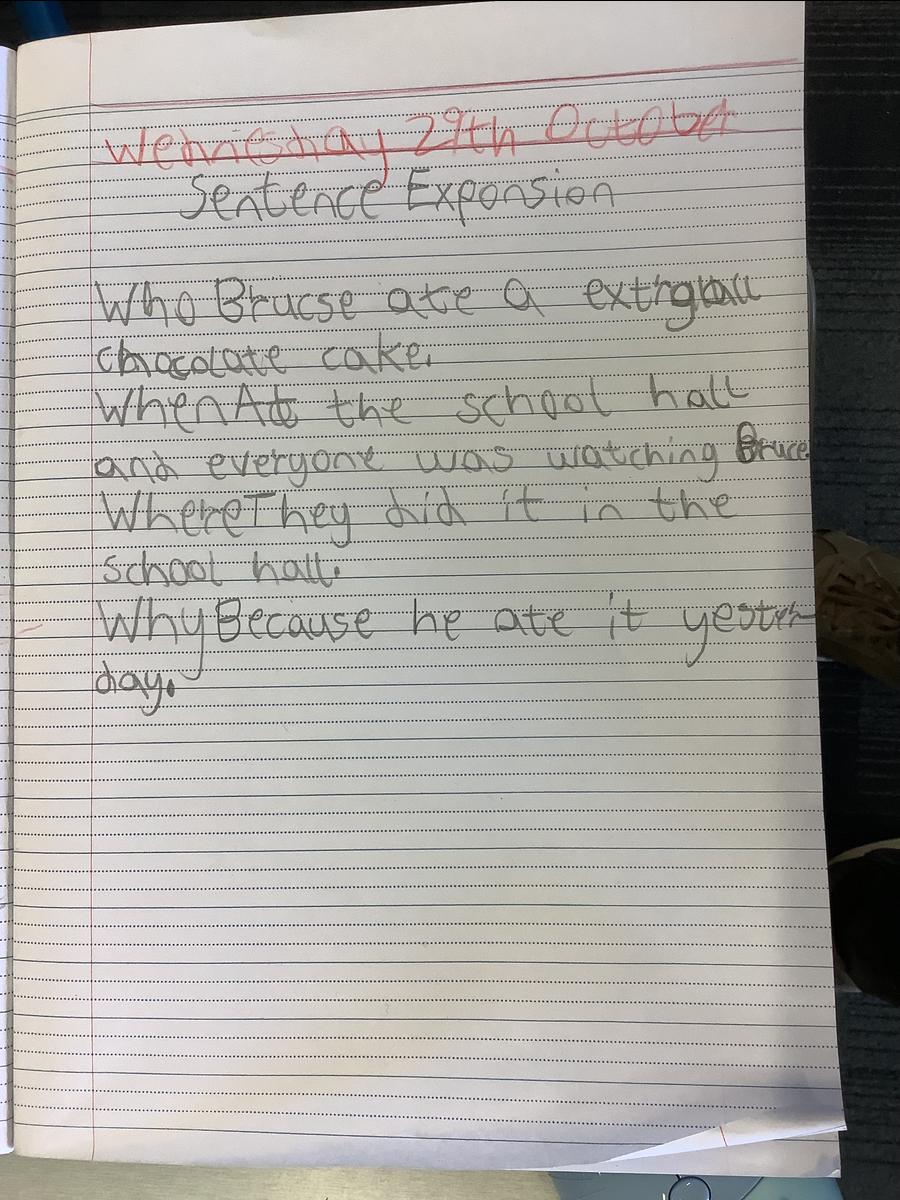 Wednesday 29th October
Sentence Expansion
Who Brucse ate a
chocolate cake.
When At the school hall
and everyone was watching Bruce
Where They did it in the
school hall.
Why Because he ate it yester
day.